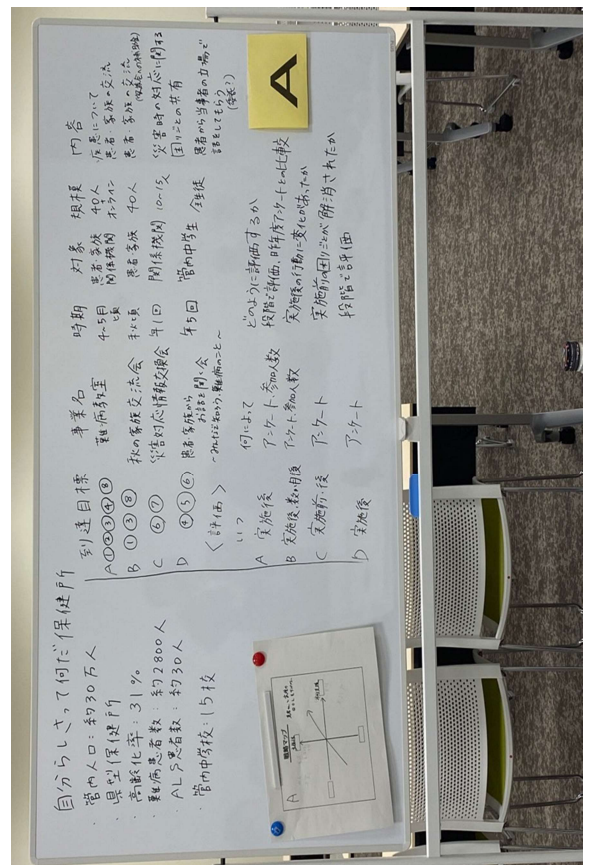 自分らしさって何だ保健所
・管内人口:約30万人
・県型保健所
・高齢化率:31%
・難病患者数:約2800人
・ALS患者数:約30人
管内中学校:15校
到達目標 事業名 時期 対象 規模 内容
A ①②③④⑧ 難病教室 4〜5月頃 患者・家族 関係機関 40人 オンライン 疾患について 患者・家族の交流
B ①③⑧ 秋の家族交流会 秋頃 患者・家族 40人 患者・家族の交流
C ⑥⑦ 災害対応情報交換会 年1回 関係機関 10〜15人 災害時の対応に関する困りごとの共有
D ④⑤⑥ 患者・家族からお話を聞く会 年5回 管内中学生 全生徒 患者から当事者の立場で話をしてもらう
〜みんなで知ろう、難病のこと〜
(委託?)
<評価>
いつ 何によって どのように評価するか
A 実施後 アンケート・参加人数 段階で評価、昨年度アンケートとの比較
B 実施後、数か月後 アンケート、参加人数 実施後の行動に変化があったか
C 実施前・後 アンケート 実施前の困りごとが解消されたか
D 実施後 アンケート 段階で評価
A
A
戦略マップ